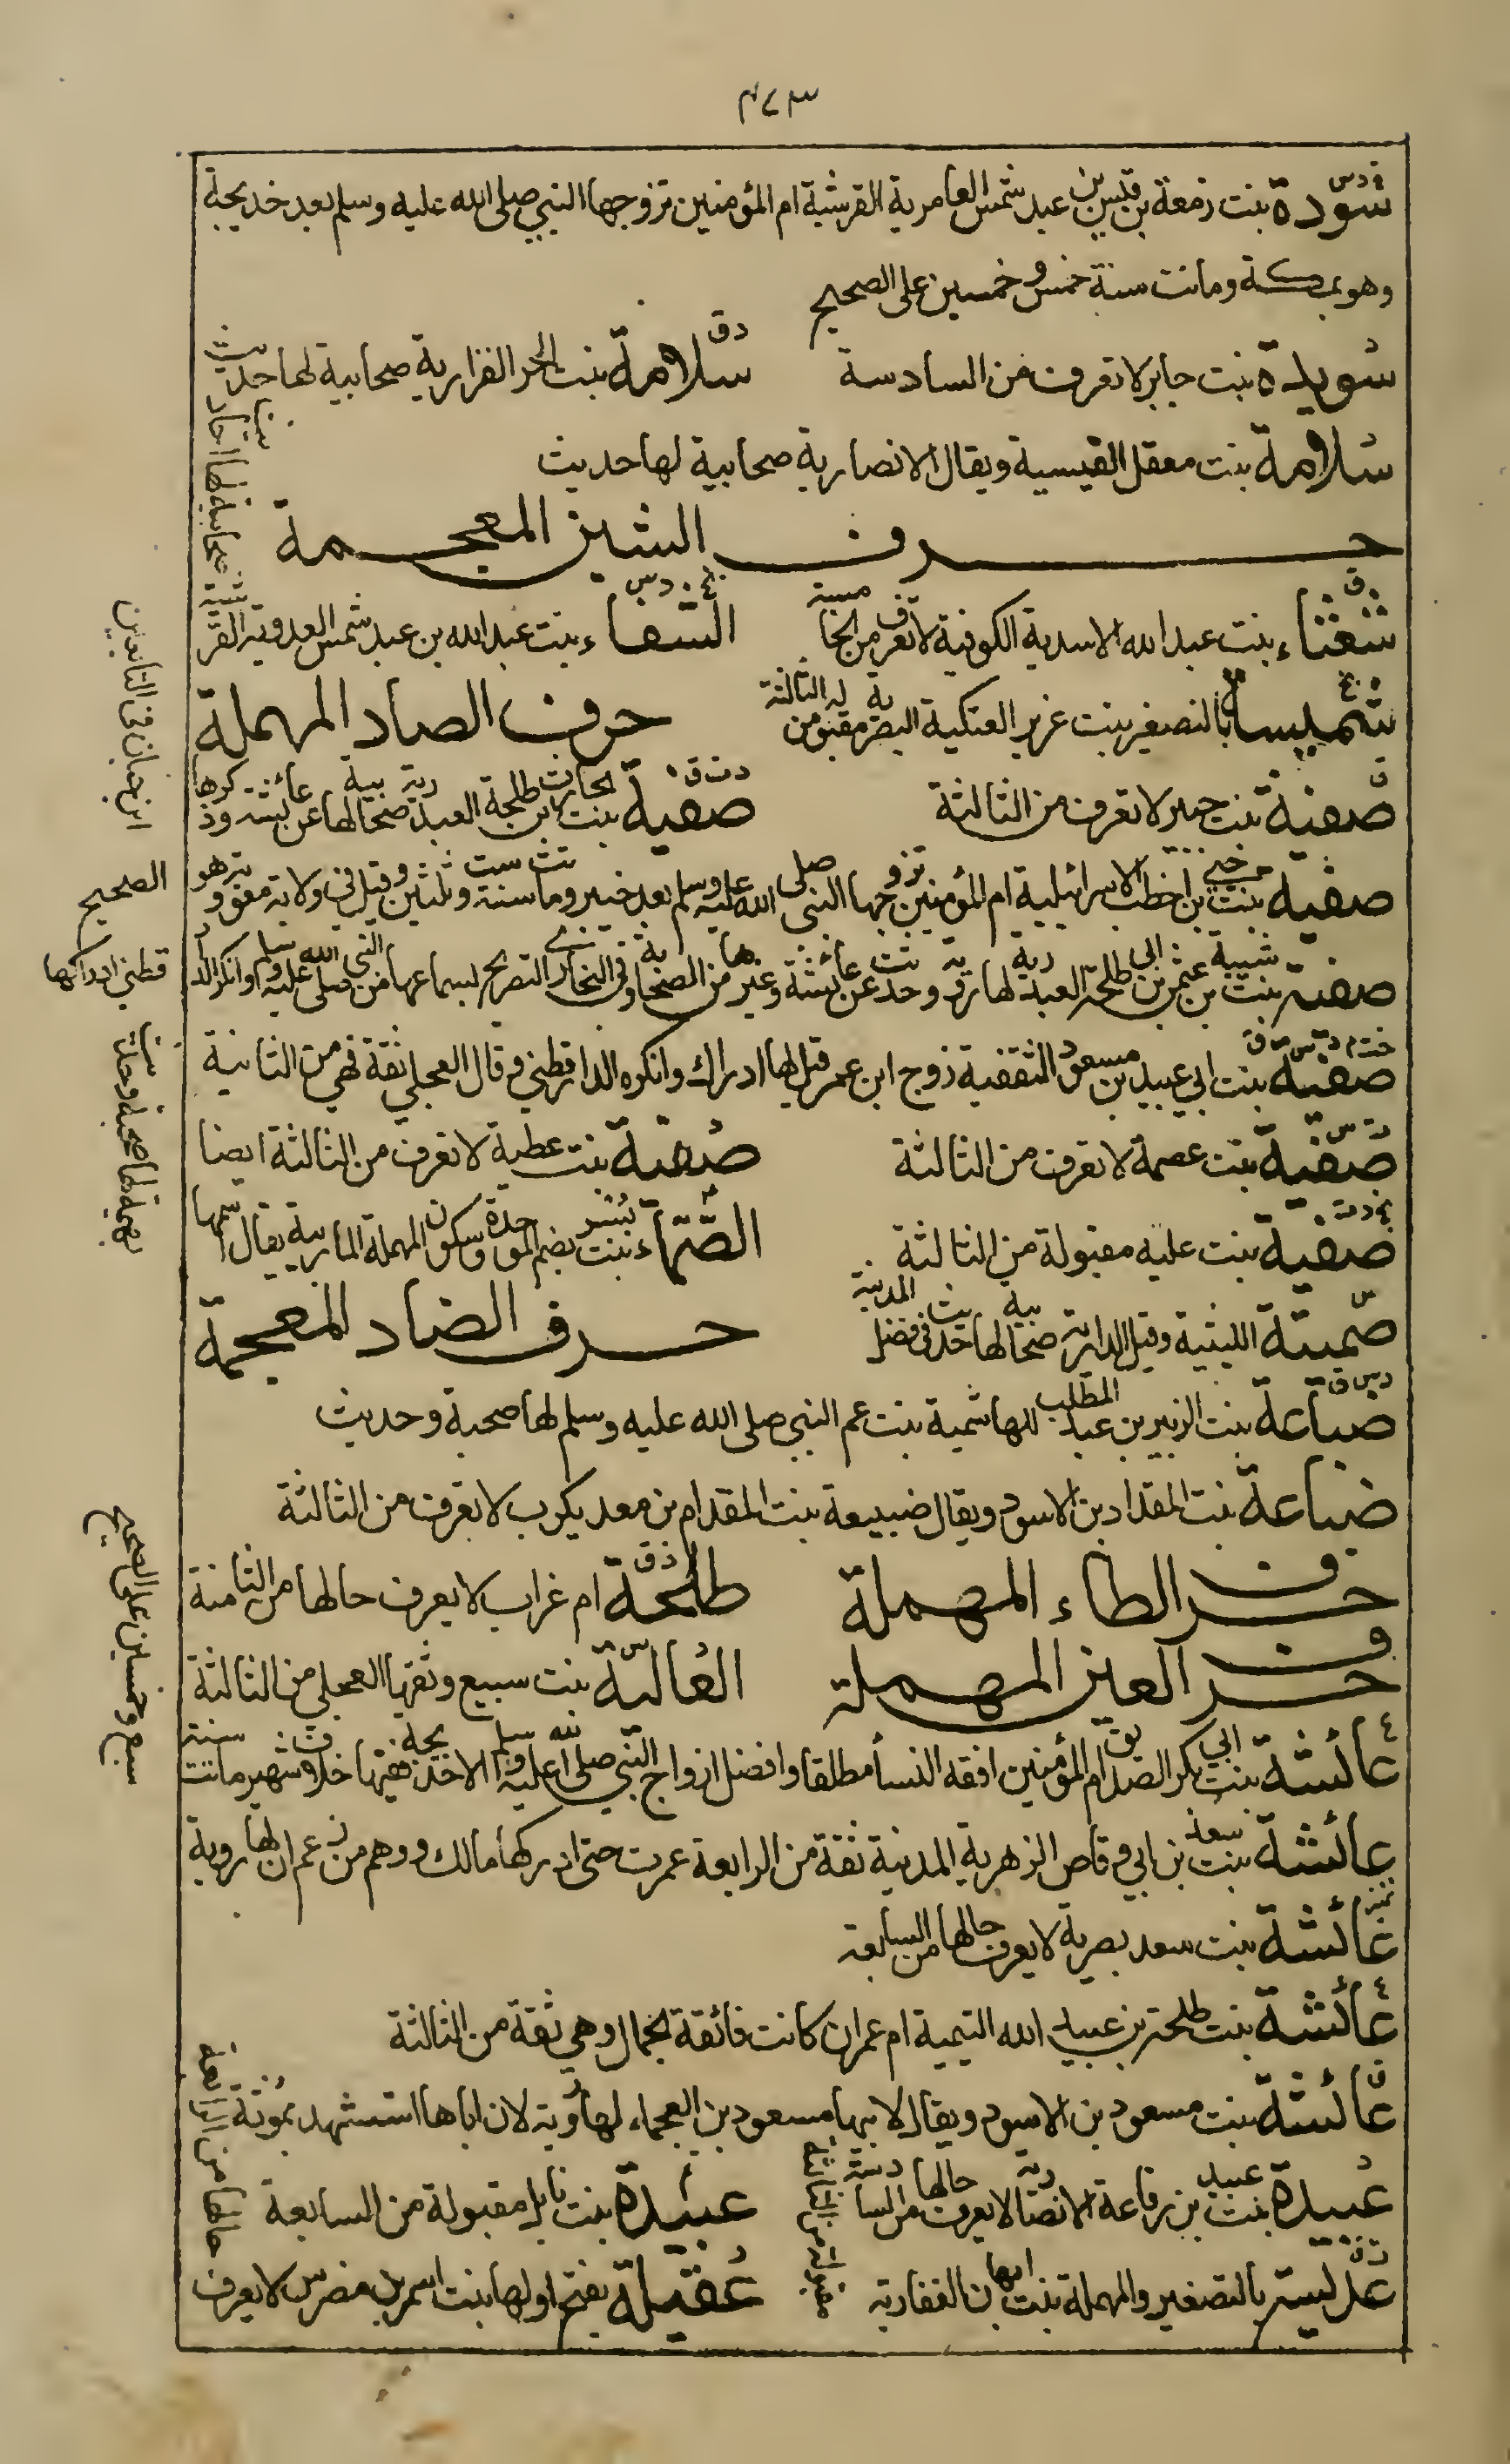 ٤٧٣
سودة بنت زمعة بن قيس بن عبد شمس العامرية القرشية ام المؤمنين تزوجها النبي صلى الله عليه وسلم بعد خديجة
وهو بمكة وماتت سنة خمس وخمسين على الصحيح
سويدة بنت جابر لا تعرف من السادسة
سلامة بنت الحر الفزارية صحابية لها حديث
سلامة بنت معقل القيسية ويقال الانصارية صحابية لها حديث
حرف الشين المعجمة
شعثاء بنت عبد الله الاسدية الكوفية لا تعرف من الخامسة
الشفاء بنت عبد الله بن عبد شمس العدوية القرشية صحابية لها احاديث
شميسة بالتصغير بنت عزيز العتكية البصرية مقبولة من الثالثة
حرف الصاد المهملة
صفية بنت جبير لا تعرف من الثالثة
صفية بنت الحارث بن طلحة العبدرية صحابية لها عن عائشة وذكرها
ابن حبان في التابعين
صفية بنت حيي بن اخطب الاسرائيلية ام المؤمنين تزوجها النبي صلى الله عليه وسلم بعد خيبر وماتت سنة ست وثلثين وقيل في ولاية معوية وهو
الصحيح
صفية بنت شيبة بن عثمن بن ابي طلحة العبدرية لها رؤية وحدثت عن عائشة وغيرها من الصحابة وفي البخاري التصريح بسماعها من النبي صلى الله عليه وسلم وانكر الدار
قطني ادراكها
صفية بنت ابي عبيد بن مسعود الثقفية زوج ابن عمر قيل لها ادراك وانكره الدارقطني وقال العجلي ثقة فهي من الثانية
صفية بنت عصمة لا تعرف من الثالثة
صفية بنت عطية لا تعرف من الثالثة ايضا
صفية بنت علية مقبولة من الثالثة
الصماء بنت بسر بضم الموحدة وسكون المهملة المازنية يقال اسمها
بهيمة لها صحبة وحديث
صميتة الليثية وقيل الدارية صحابية لها حديث في فضل المدينة
حرف الضاد المعجمة
ضباعة بنت الزبير بن عبد المطلب الهاشمية بنت عم النبي صلى الله عليه وسلم لها صحبة وحديث
ضباعة بنت المقداد بن الاسود ويقال ضبيعة بنت المقدام بن معد يكرب لا تعرف من الثالثة
حرف الطاء المهملة
طلحة ام غراب لا يعرف حالها من الثامنة
حرف العين المهملة
العالية بنت سبيع وثقها العجلي من الثالثة
عائشة بنت ابي بكر الصديق ام المؤمنين افقه النسأ مطلقا وافضل ازواج النبي صلى الله عليه وسلم الا خديجة ففيها خلاف شهير ماتت سنة
سبع وخمسين على الصحيح
عائشة بنت سعد بن ابي وقاص الزهرية المدنية ثقة من الرابعة عمرت حتى ادركها مالك ووهم من زعم ان لها روية
عائشة بنت سعد بصرية لا يعرف حالها من السابعة
عائشة بنت طلحة بن عبيد الله التيمية ام عمران كانت فائقة الجمال وهي ثقة من الثالثة
عائشة بنت مسعود بن الاسود ويقال لابيها مسعود بن العجماء لها رؤية لان اباها استشهد بمؤتة
عبيدة بنت عبيد بن رفاعة الانصارية لا يعرف حالها من السادسة
عبيدة بنت نابل مقبولة من السابعة
عديسة بالتصغير والمهملة بنت اهبان الغفارية مقبولة من الثالثة
عقيلة بفتح اولها بنت اسمر بن مضرس لا يعرف حالها من الرابعة